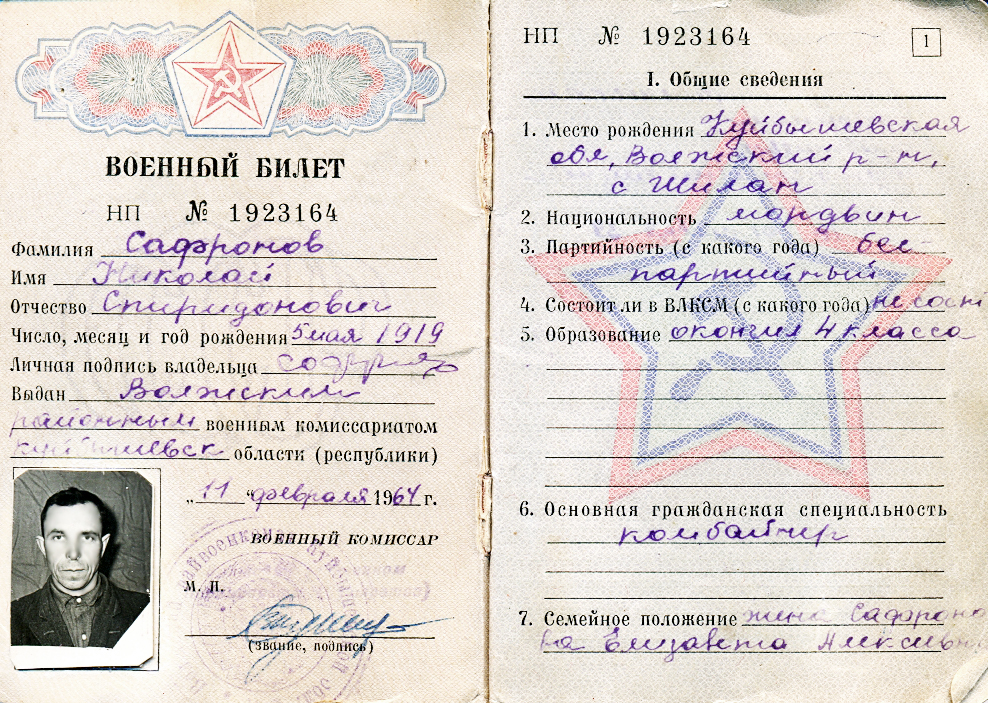 ВОЕННЫЙ БИЛЕТ
НП № 1923164
Фамилия Сафронов
Имя Николай
Отчество Спиридонович
Число, месяц и год рождения 5 мая 1919
Личная подпись владельца
Выдан Волжским
районным военным комиссариатом
куйбышевск области (республики)
„11 “ февраля 1964 г.
ВОЕННЫЙ КОМИССАР
М. П.
(звание, подпись)
НП № 1923164
1
I. Общие сведения
1. Место рождения Куйбышевская
обл, Волжский р-н,
с Шилан
2. Национальность мордвин
3. Партийность (с какого года) бес-
партийный
4. Состоит ли в ВЛКСМ (с какого года) не сост
5. Образование окончил 4 класса
6. Основная гражданская специальность
комбайнер
7. Семейное положение жена Сафроно
ва Елизавета Алексевна